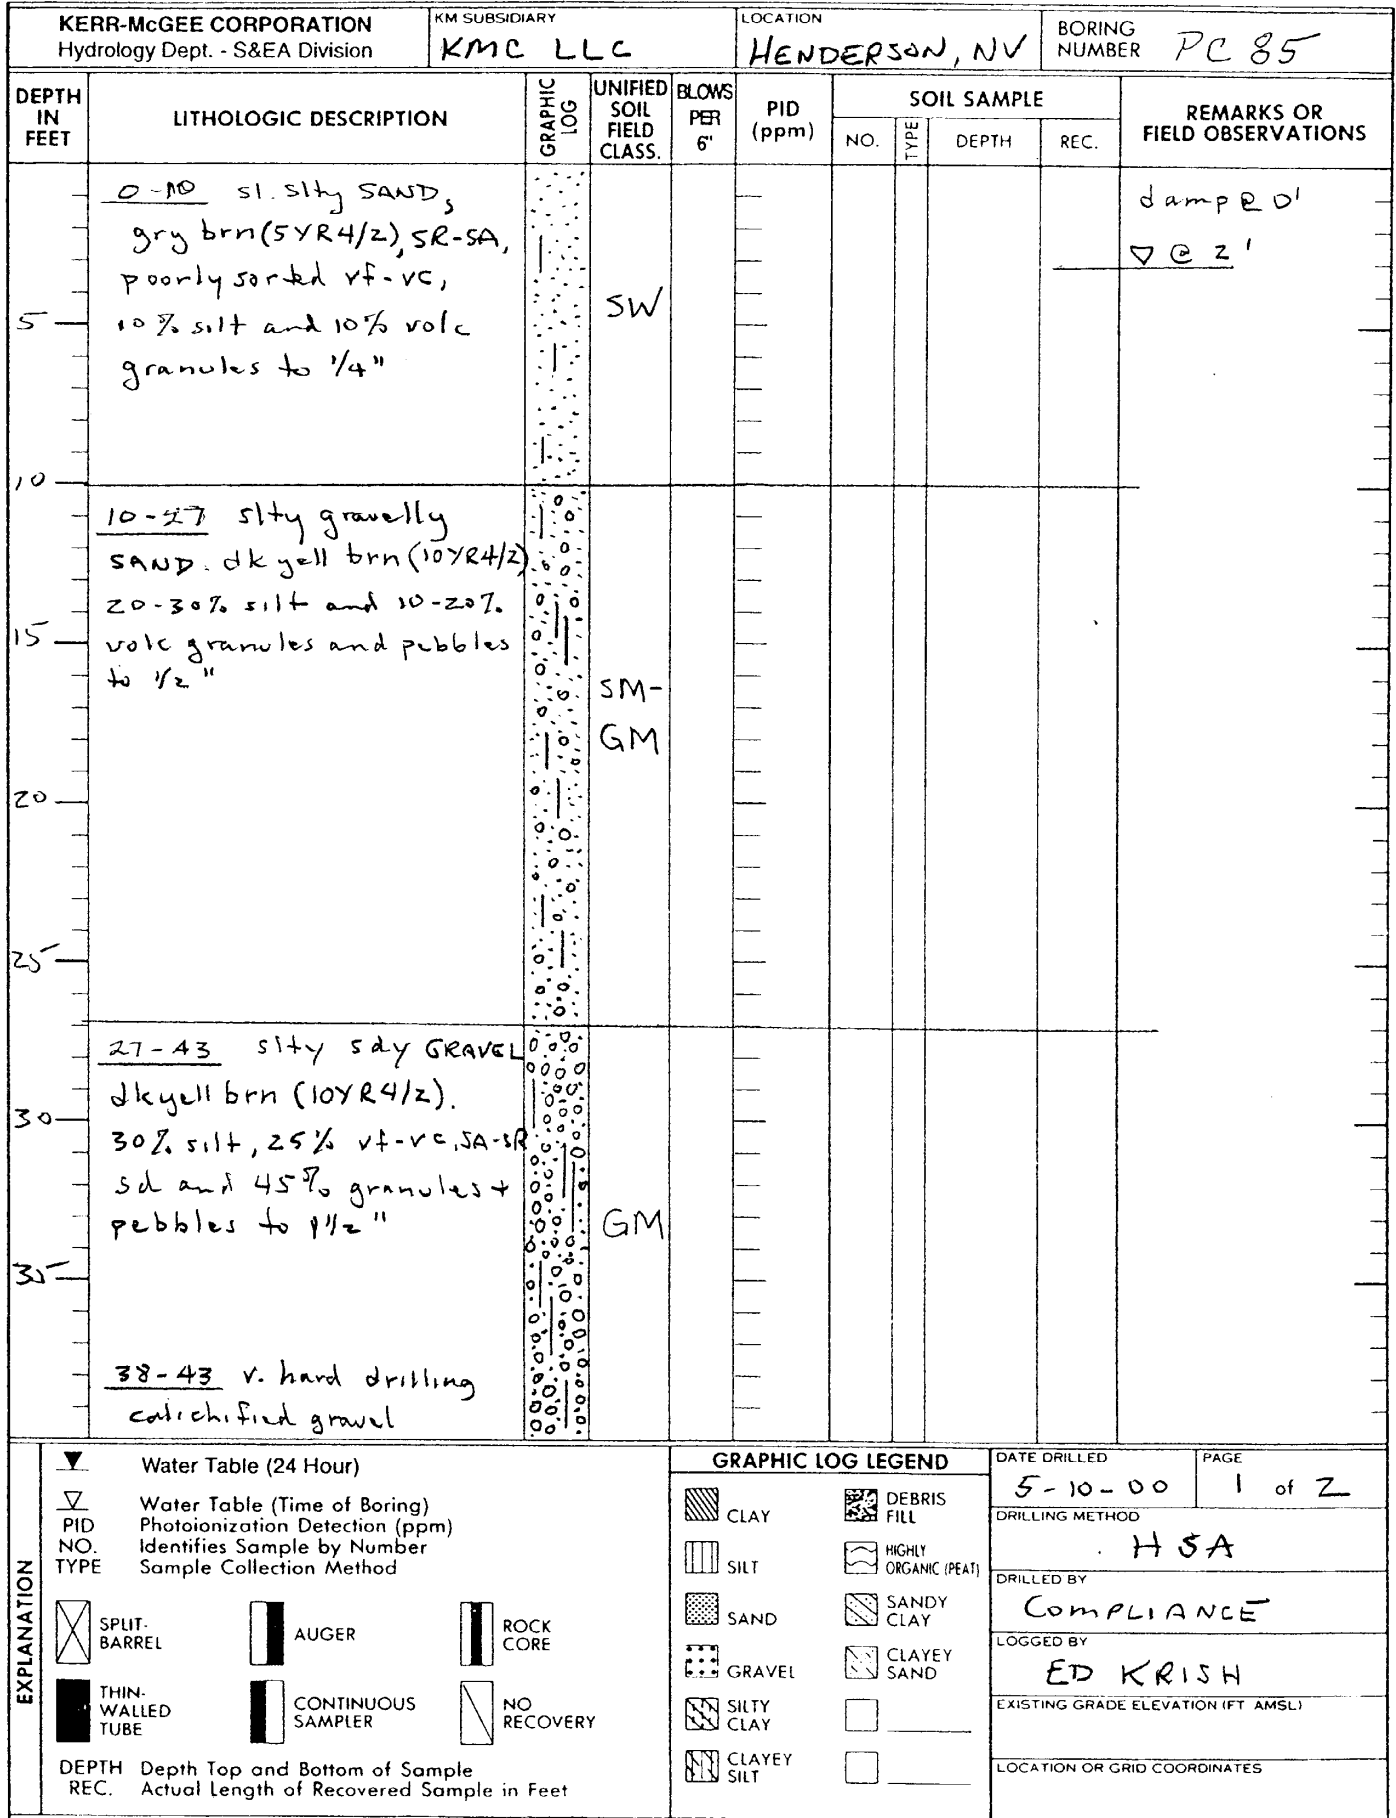 KERR-McGEE CORPORATION
Hydrology Dept. - S&EA Division
KM SUBSIDIARY
KMC LLC
LOCATION
HENDERSON, NV
BORING NUMBER PC 85
DEPTH IN FEET
LITHOLOGIC DESCRIPTION
GRAPHIC LOG
UNIFIED SOIL FIELD CLASS.
BLOWS PER 6"
PID (ppm)
SOIL SAMPLE
NO.
TYPE
DEPTH
REC.
REMARKS OR FIELD OBSERVATIONS
0-10 sl. slty SAND,
gry brn (5YR4/2), SR-SA,
poorly sorted vf-vc,
10% silt and 10% volc
granules to 1/4"
SW
damp @ 0'
▽ @ 2'
5
10
10-27 slty gravelly
SAND. dk yell brn (10YR4/2)
20-30% silt and 10-20%
volc granules and pebbles
to 1/2"
SM-
GM
15
20
25
27-43 slty sdy GRAVEL
dk yell brn (10YR4/2).
30% silt, 25% vf-vc, SA-SR
sd and 45% granules +
pebbles to 1 1/2"
GM
30
35
38-43 v. hard drilling
calichified gravel
EXPLANATION
▼ Water Table (24 Hour)
▽ Water Table (Time of Boring)
PID Photoionization Detection (ppm)
NO. Identifies Sample by Number
TYPE Sample Collection Method
SPLIT-
BARREL
AUGER
ROCK
CORE
THIN-
WALLED
TUBE
CONTINUOUS
SAMPLER
NO
RECOVERY
DEPTH Depth Top and Bottom of Sample
REC. Actual Length of Recovered Sample in Feet
GRAPHIC LOG LEGEND
CLAY
DEBRIS
FILL
SILT
HIGHLY
ORGANIC (PEAT)
SAND
SANDY
CLAY
GRAVEL
CLAYEY
SAND
SILTY
CLAY
CLAYEY
SILT
DATE DRILLED
5-10-00
PAGE
1 of 2
DRILLING METHOD
HSA
DRILLED BY
COMPLIANCE
LOGGED BY
ED KRISH
EXISTING GRADE ELEVATION (FT AMSL)
LOCATION OR GRID COORDINATES